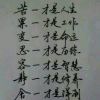 苦一才是人生
累一才是工作
变一才是命运
忍一才是历练
容一才是智慧
静一才是修养
舍一才是得到